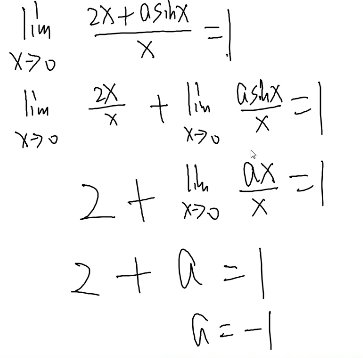 lim x→0 (2x+asinx)/x = 1
lim x→0 2x/x + lim x→0 asinx/x = 1
2 + lim x→0 ax/x = 1
2 + a = 1
a = -1